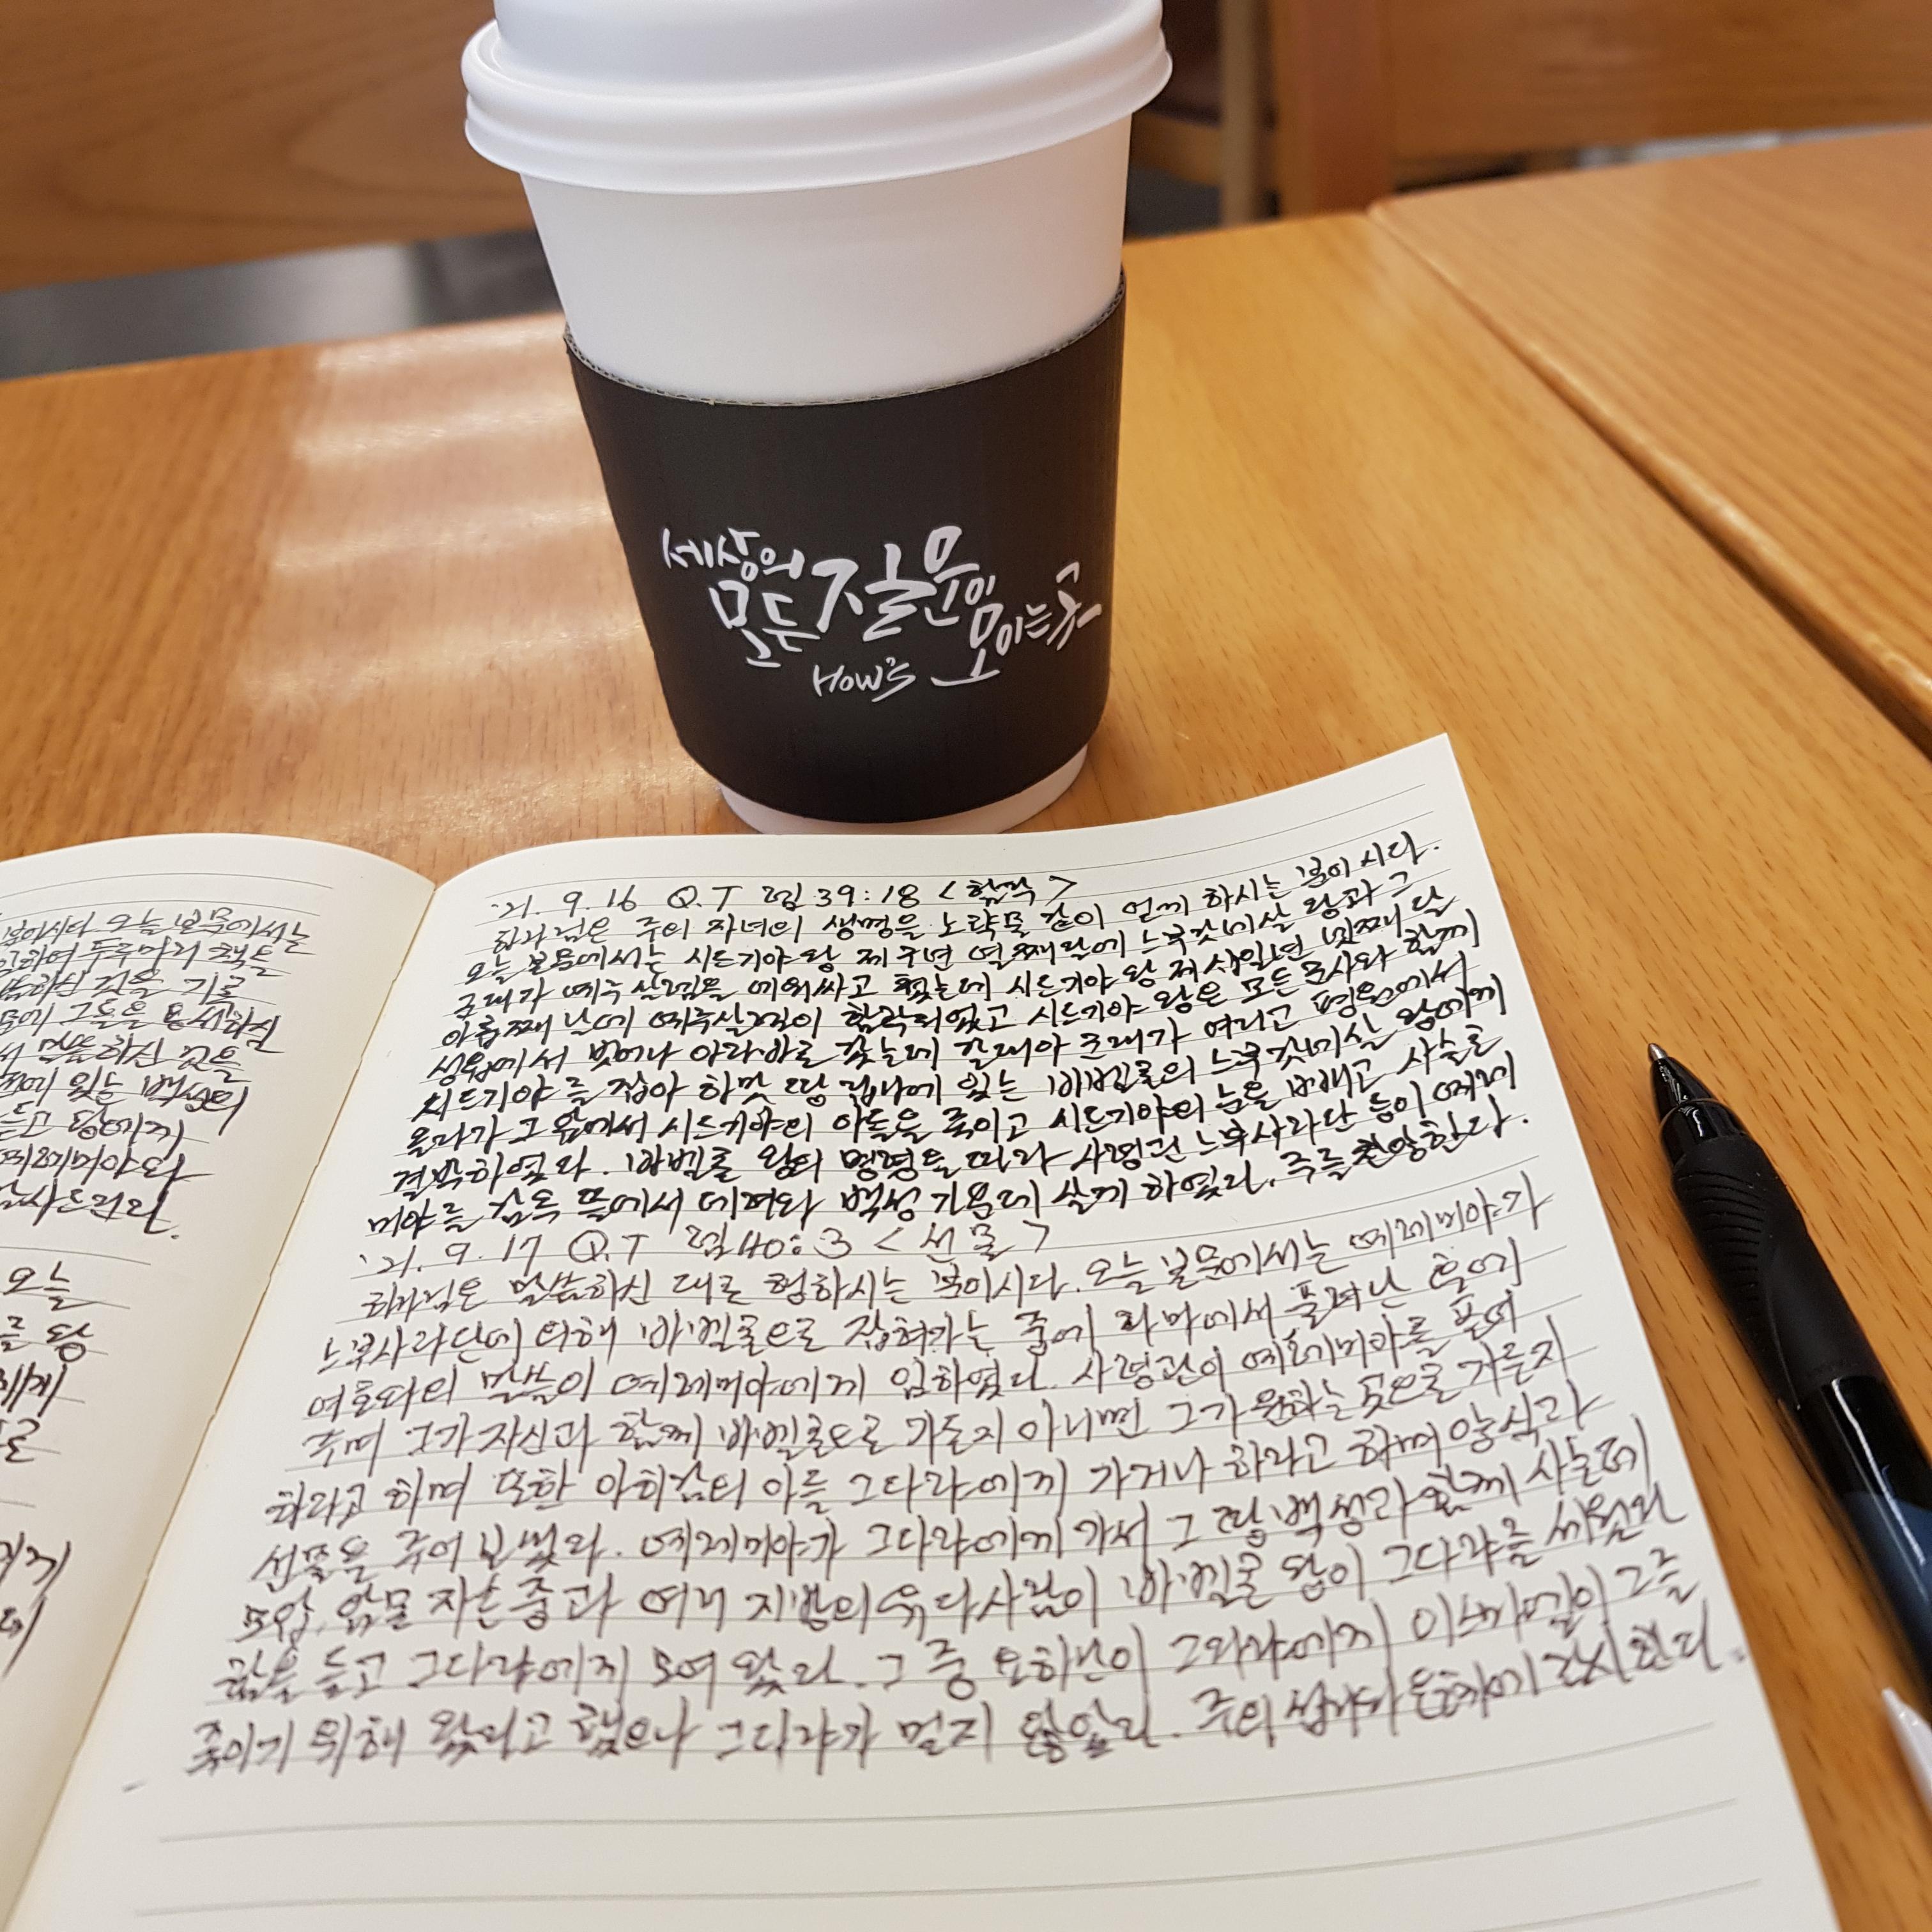 세상의
모든 질문이
모이는 곳
How's
'21. 9. 16 Q.T 렘 39:18 <함락>
하나님은 주의 자녀의 생명을 노략물 같이 얻게 하시는 분이시다.
오늘 본문에서는 시드기야 왕 제 구년 열째 달에 느부갓네살 왕과 그
군대가 예루살렘을 에워싸고 쳤는데 시드기야 왕 제 십일년 넷째 달
아홉째 날에 예루살렘이 함락되었고 시드기야 왕은 모든 군사와 함께
성읍에서 벗어나 아라바로 갔는데 갈대아 군대가 여리고 평원에서
시드기야를 잡아 하맛 땅 립나에 있는 바벨론의 느부갓네살 왕에게
올라가 그 앞에서 시드기야의 아들을 죽이고 시드기야의 눈을 빼고 사슬로
결박하였다. 바벨론 왕의 명령을 따라 사령관 느부사라단 등이 예레
미야를 감옥 뜰에서 데려와 백성 가운데 살게 하였다. 주를 찬양한다.
'21. 9. 17 Q.T 렘 40:3 <선물>
하나님은 말씀하신 대로 행하시는 분이시다. 오늘 본문에서는 예레미야가
느부사라단에 의해 바벨론으로 잡혀가는 중에 라마에서 풀려난 후에
여호와의 말씀이 예레미야에게 임하였다. 사령관이 예레미야를 풀어
주며 그가 자신과 함께 바벨론으로 가든지 아니면 그가 원하는 곳으로 가든지
하라고 하며 또한 아히감의 아들 그다랴에게 가거나 하라고 하며 양식과
선물을 주어 보냈다. 예레미야가 그다랴에게 가서 그 땅 백성과 함께 사는데
모압, 암몬 자손 중과 여러 지방의 유다 사람이 바벨론 왕이 그다랴를 세웠다
함을 듣고 그다랴에게 모여 왔다. 그 중 요하난이 그다랴에게 이스마엘이 그를
죽이기 위해 왔다고 했으나 그다랴가 믿지 않았다. 주의 섭리와 은혜에 감사한다.
오늘 본문에서는
두루마리 책을
말씀하신 것을 기록
말씀하신 것을
있는 백성의
예레미야와
감사드린다.
오늘